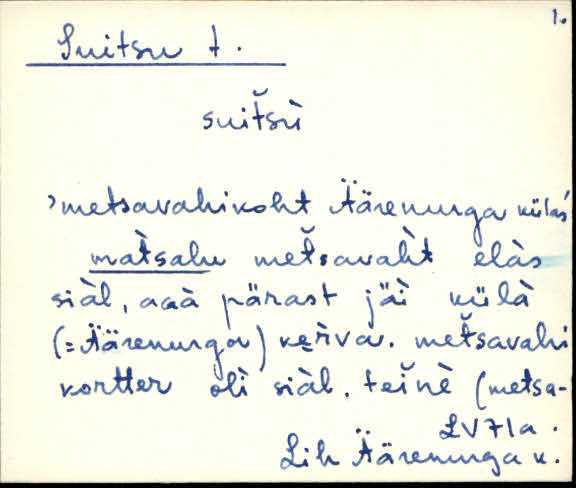 1.
Suitsu t.
suitšù
›metsavahikoht Äärenurga külas›
matsalu metšavaht elàs
siàl, aaà pärast jäì külà
(=Äärenurga) keřva. metšavahi
kortter olì siàl. teĭnè (metsa-
LV71a.
Lih Äärenurga k.